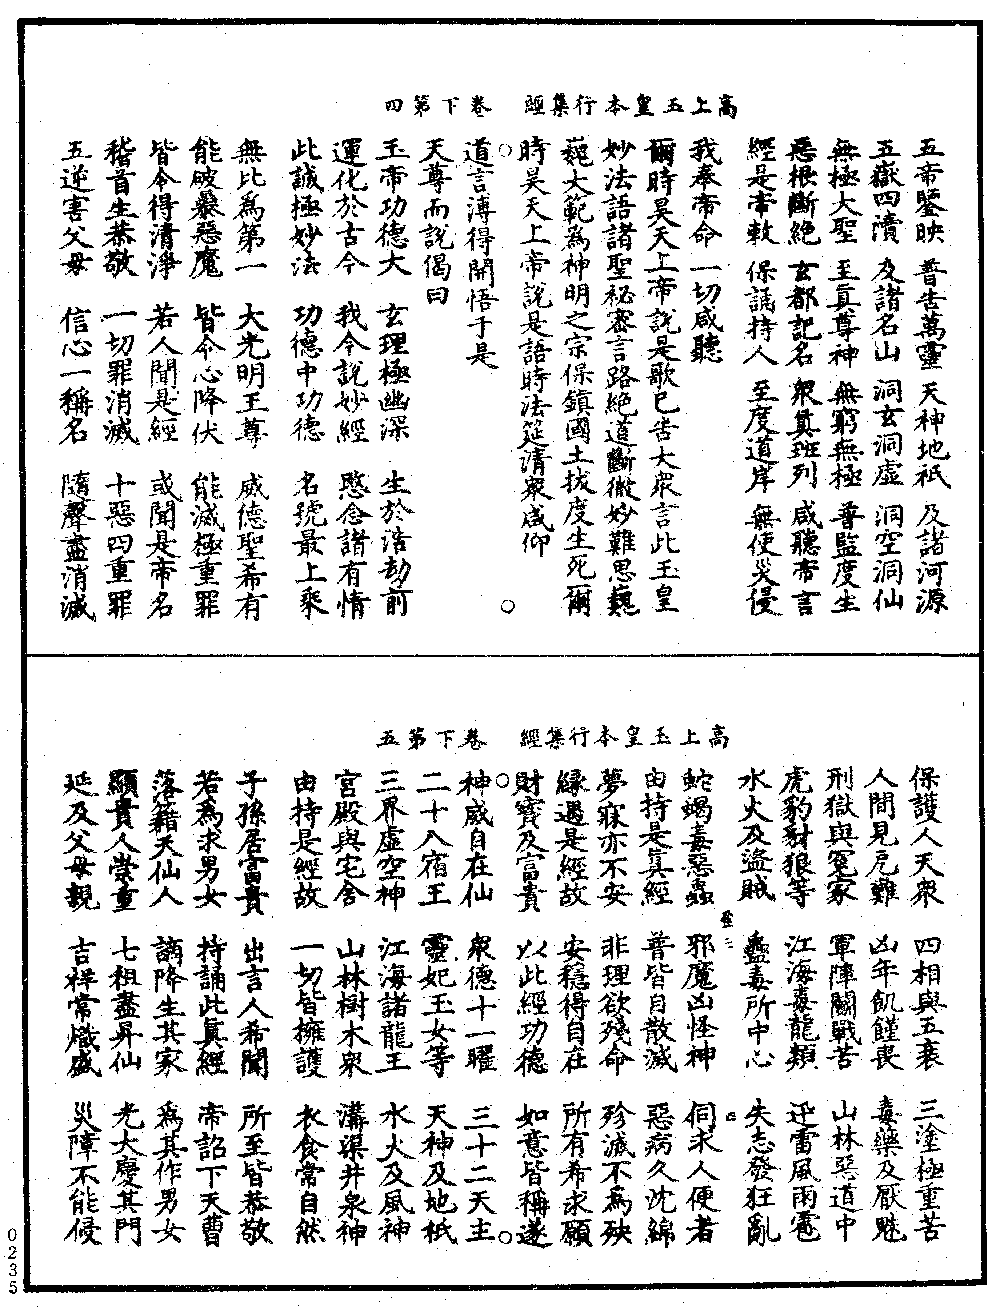 高上玉皇本行集經　卷下第四
五帝鑒映　普告萬靈　天神地祇　及諸河源
五嶽四瀆　及諸名山　洞玄洞虛　洞空洞仙
無極大聖　至真尊神　無窮無極　普監度生
惡根斷絕　玄都記名　眾真班列　咸聽帝言
經是帝敕　保誦持人　至度道岸　無使災侵
我奉帝命　一切咸聽
爾時昊天上帝說是歌已告大眾言此玉皇
妙法語諸聖祕密言路絕道斷微妙難思巍
巍大範為神明之宗保鎮國土拔度生死爾
時昊天上帝說是語時法筵清眾咸仰
道言溥得開悟于是
天尊而說偈曰
玉帝功德大　玄理極幽深　生於浩劫前
運化於古今　我今說妙經　愍念諸有情
此誠極妙法　功德中功德　名號最上乘
無比為第一　大光明王尊　威德聖希有
能破暴惡魔　皆令心降伏　能滅極重罪
皆令得清淨　若人聞是經　或聞是帝名
稽首生恭敬　一切罪消滅　十惡四重罪
五逆害父母　信心一稱名　隨聲盡消滅
高上玉皇本行集經　卷下第五
保護人天眾　四相與五衰　三塗極重苦
人間見危難　凶年飢饉喪　毒藥及厭魅
刑獄與冤家　軍陣鬭戰苦　山林惡道中
虎豹豺狼等　江海毒龍類　迅雷風雨雹
水火及盜賊　蠱毒所中心　失志發狂亂
蛇蝎毒惡蟲　邪魔凶怪神　伺求人便者
由持是真經　普皆自散滅　惡病久沈綿
夢寐亦不安　非理欲殘命　殄滅不為殃
緣遇是經故　安穩得自在　所有希求願
財寶及富貴　以此經功德　如意皆稱遂
神威自在仙　眾德十一曜　三十二天主
二十八宿王　靈妃玉女等　天神及地祇
三界虛空神　江海諸龍王　水火及風神
宮殿與宅舍　山林樹木眾　溝渠井泉神
由持是經故　一切皆擁護　衣食常自然
子孫居富貴　出言人希聞　所至皆恭敬
若為求男女　持誦此真經　帝詔下天曹
落籍天仙人　謫降生其家　為其作男女
顯貴人崇重　七祖盡昇仙　光大慶其門
延及父母親　吉祥常熾盛　災障不能侵
0235